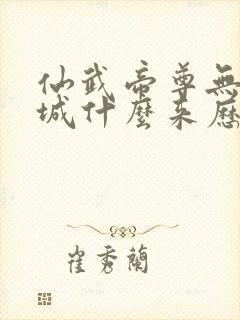 仙武帝尊無
城什麼來歷
崔秀蘭